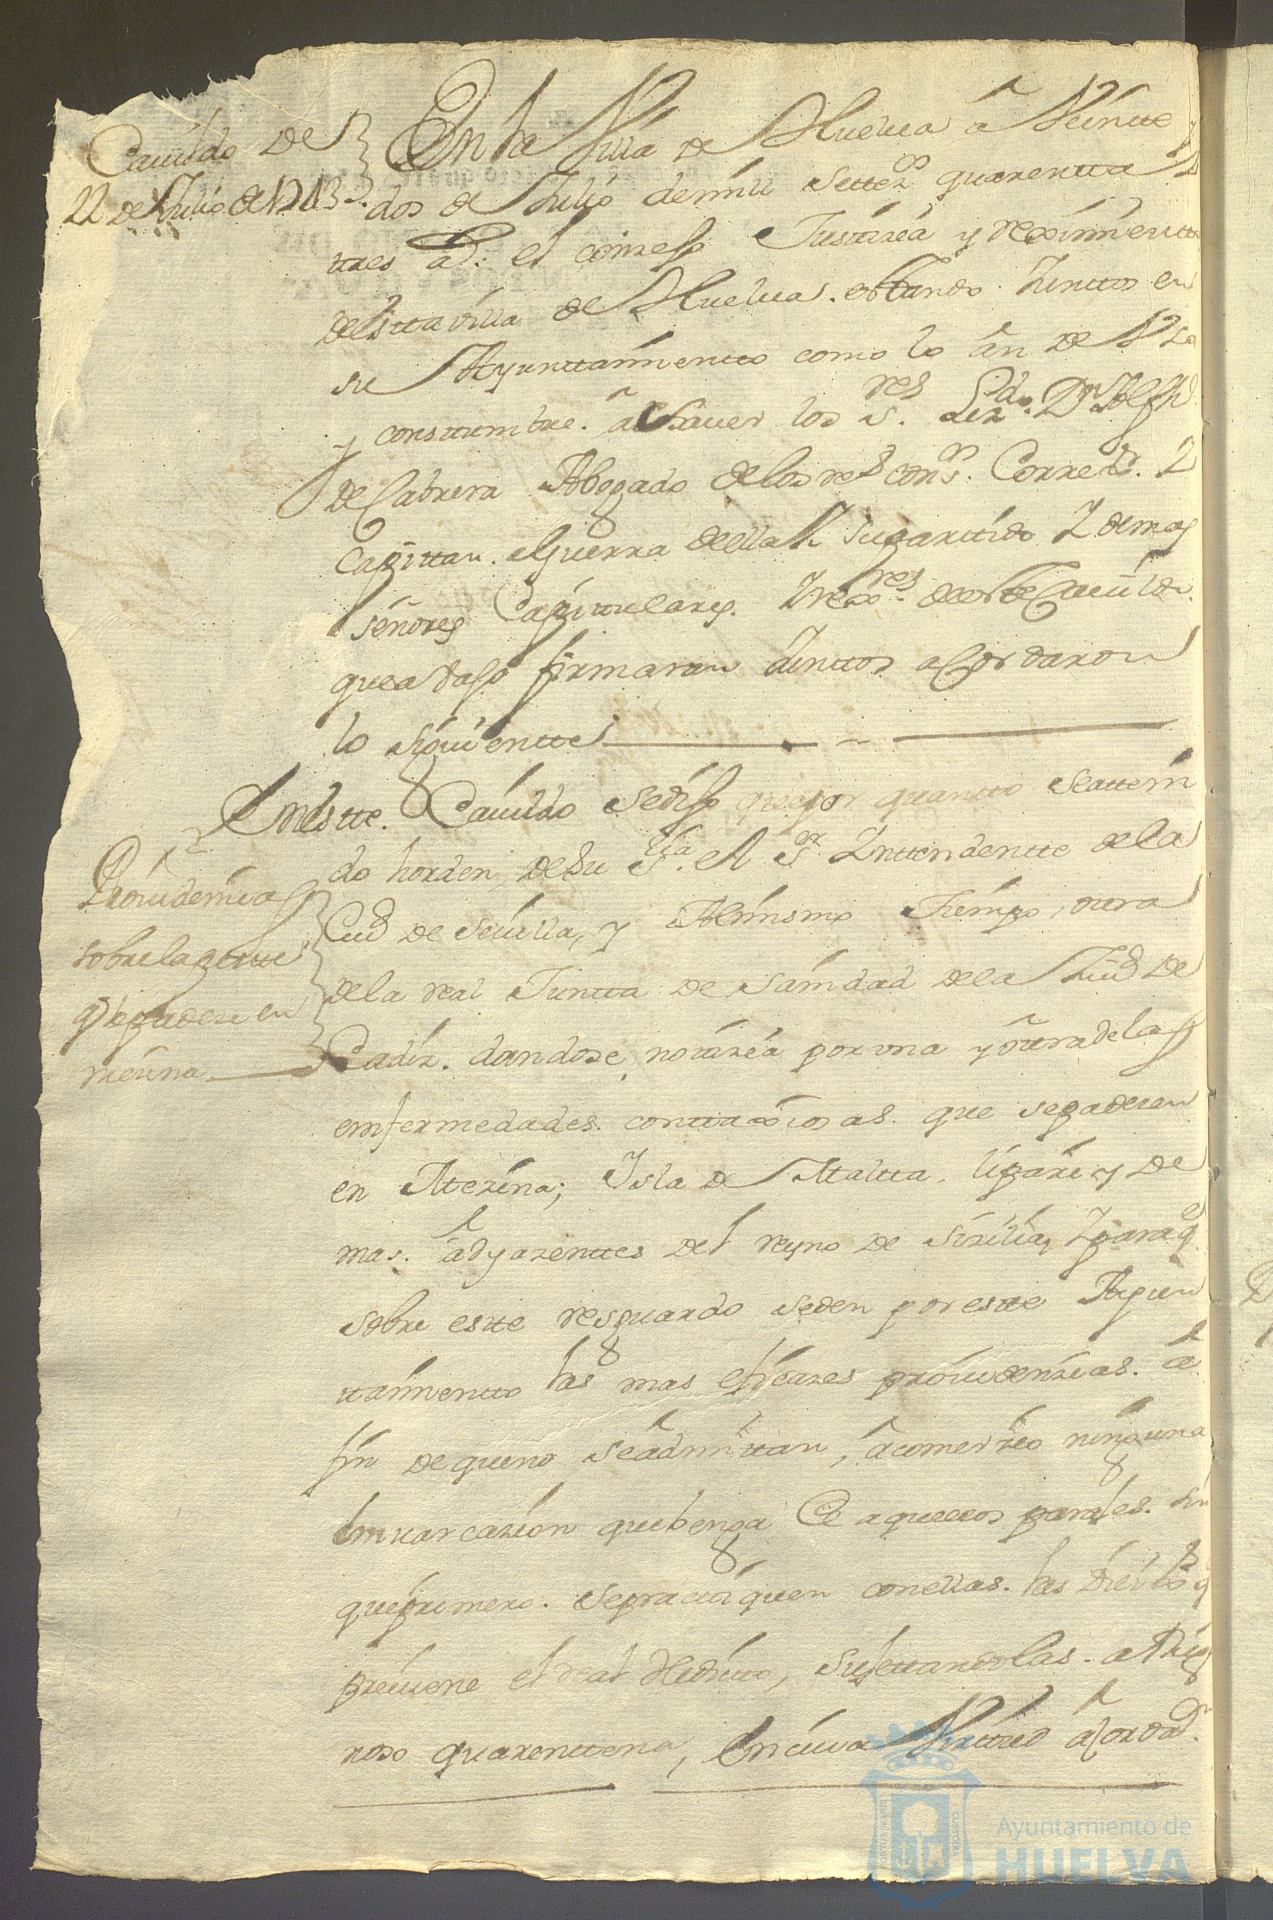 Cavildo de
22 de Julio de 1743
En la Villa de Huelva â Veintte y
dos de Julio de mill settez.os quarentta y
ttres a.s el conzejo Justizia y reximientto
desttta villa de Huelva. esttando Junttos en
su Ayunttamientto como lo ân de Uso
y costtumbre. â saver los S.res Liz.do D.n Alph.o
de Cabrera Abogado de los r.s cons.os Corre.or Y
Capittan. â Guerra de ella Y su parttido Y demas
señores Capittulares. Y rex.res de estte Cavildo.
que avajo firmaran Junttos acordaron
lo siguientte
En estte. Cavildo se dijo que por quantto se a tteni
do horden de Su S.ria el S.r Inttendentte de la
Ciud de Sevilla, y Al mismo Tiempo, ottra
de la real Juntta de Sanidad de la Ziud de
Cadiz. dandose notizia por una y ôttra de las
enfermedades. conttaxiosas. que se padecen
en Mezina; Isla de Maltta. lipari y de
mas. âdyazenttes del reyno de Sizilia, Y para q.e
sobre estte resguardo se den por estte Ayun
ttamientto las mas eficazes providenzias. â
fin de que no se âdmittan, â comerzio ninguna
Embarcazion que benga de aquellos parajes. sin
que primero. se prattiquen con ellas. las dilix.s q.e
previene el real Hedictto, sujettandolas. a Rigu
roso quarenttena, En cuia Virttud âcordar.n
Providenzia
sobre la gentte
q.e se padece en
mecina
Ayuntamiento de
HUELVA